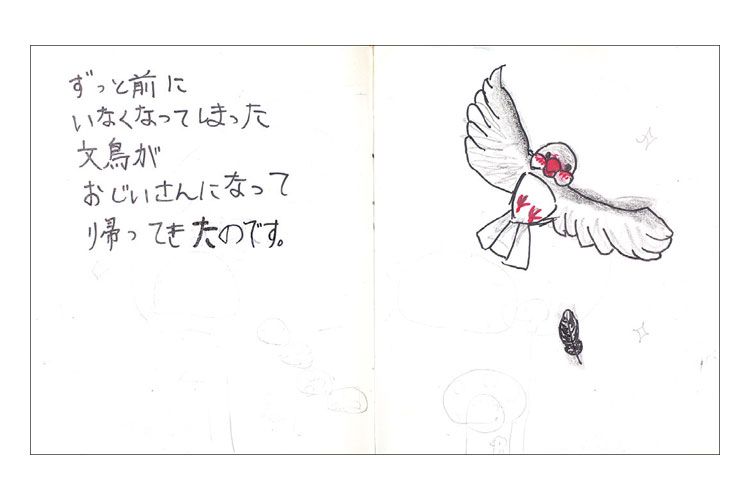 ずっと前に
いなくなってしまった
文鳥が
おじいさんになって
帰ってきたのです。